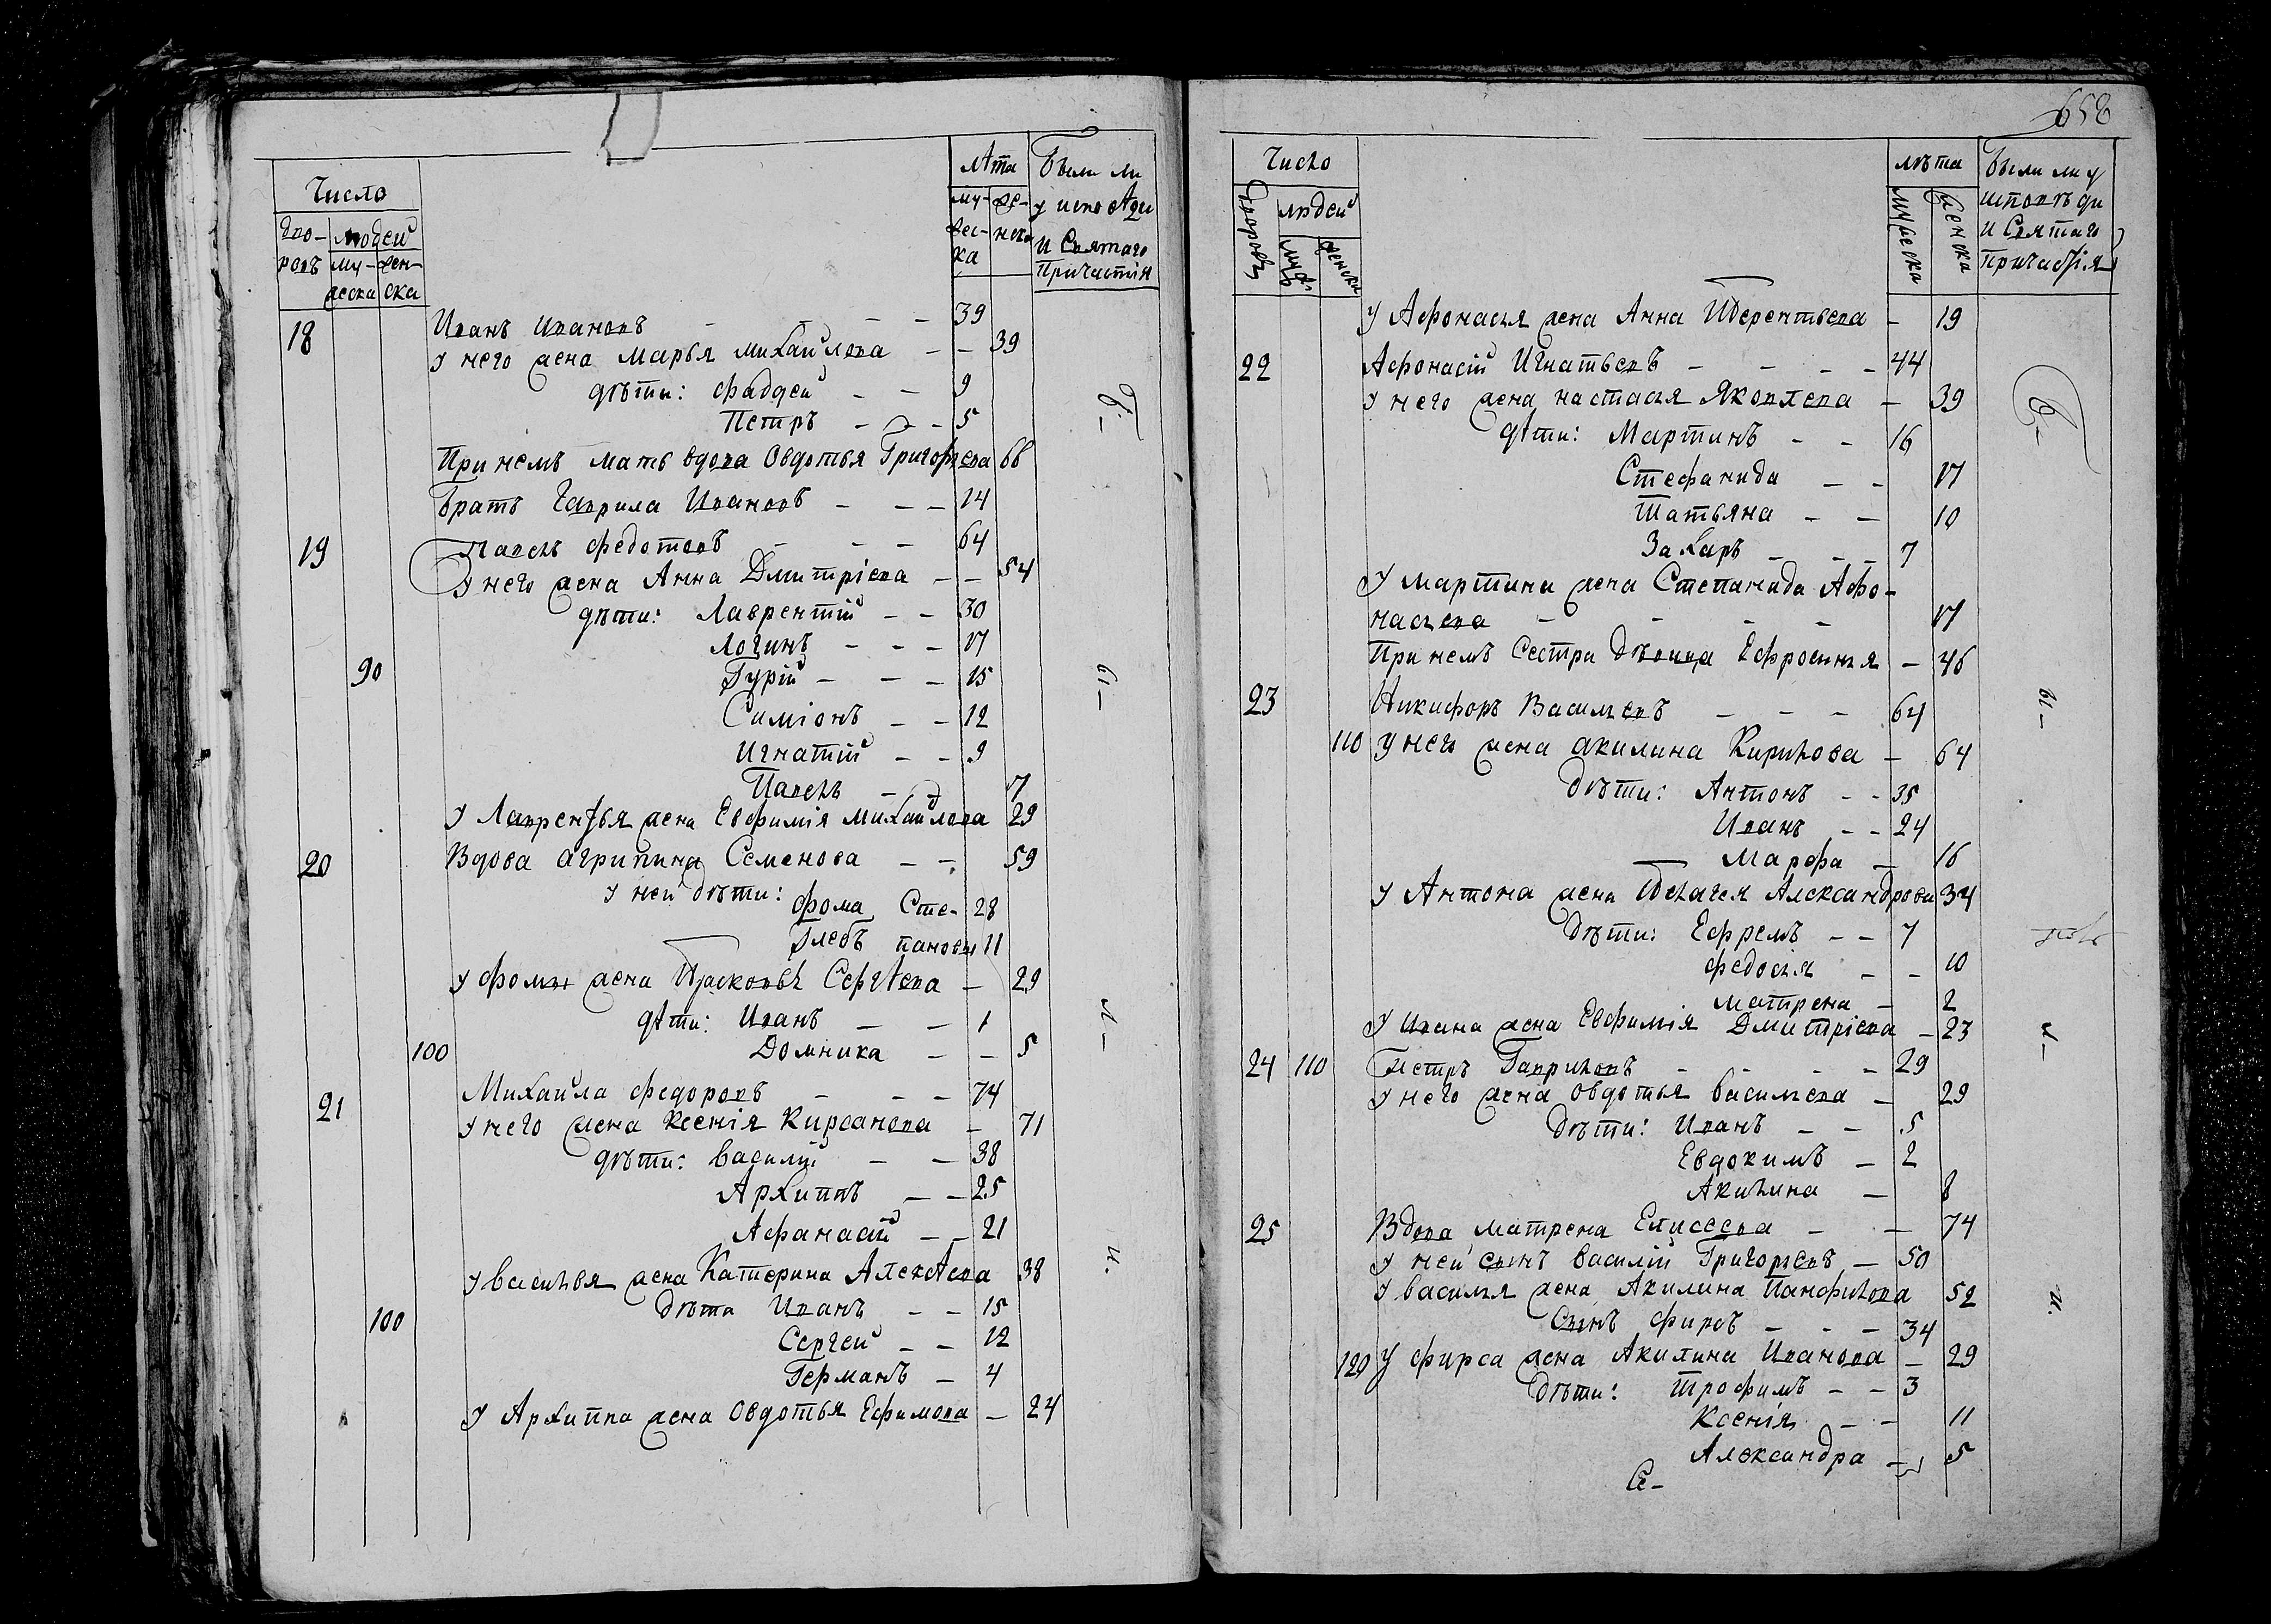 Число
Дво-
ровъ
людей
му-
жеска
жен-
ска
лѣта
му-
жес-
ка
же-
нска
Были ли
у исповѣди
и Святаго
Причастія
18 Иванъ Ивановъ - - - - 39
У него жена Марья Михайлова - - 39
дѣти: Фадѣй - - 9
Петръ - - - 5
При немъ мать вдова Овдотья Григорьева 66
братъ Гаврила Ивановъ - - - 14
19 Павелъ Федотовъ - - - 64
У него жена Анна Дмитріева - - 54
дѣти: Лаврентій - - 30
Логинъ - - - 17
90 Гурій - - - 15
Симіонъ - - 12
Игнатій - - 9
Павелъ - - 7
У Лаврентья жена Евфимія Михайлова 29
20 Вдова Агрипина Семенова - - 59
у ней дѣти: Фома Сте- 28
Глебъ пановы 11
У Фомы жена Прасковья Сергѣева - 29
дѣти: Иванъ - - 1
100 Домника - - 5
21 Михайла Федоровъ - - - 74
У него жена Ксенія Кирсанова - 71
дѣти: Василій - - 38
Архиппъ - - 25
Афанасій - - 21
У Василья жена Катерина Алексѣева 38
дѣти Иванъ - - 15
100 Сергей - - 12
Германъ - 4
У Архиппа жена Овдотья Ефимова - 24
были
658
Число
Дворовъ
людей
муж.
женска
лѣта
мужеска
женска
Были ли у
исповѣди
и Святаго
Причастія
У Афонасья жена Анна Терентьева - 19
22 Афонасій Игнатьевъ - - - - 44
У него жена Настасья Яковлева - 39
дѣти: Мартинъ - - 16
Стефанида - - 17
Татьяна - - 10
Захаръ - - - 7
У Мартина жена Степанида Афо-
насьева - - - - 17
При немъ Сестра Дѣвица Ефросинья - 46
23 Никифоръ Васильевъ - - - 64
110 У него жена Акилина Кирилова - 64
Дѣти: Антонъ - - 35
Иванъ - - 24
Марфа - 16
У Антона жена Пелагея Александрова 34
Дѣти: Ефремъ - - 7
Федосья - - 10
Матрена - 2
У Ивана жена Евфимія Дмитріева - 23
24 110 Петръ Гавриловъ - - - - 29
У него жена Овдотья Васильева - 29
Дѣти: Иванъ - - 5
Евдокимъ - 2
Акилина - 8
25 Вдова Матрена Елисеева - - 74
У ней сынъ Василій Григорьевъ - 50
У Василья жена Акилина Панфилова 52
Сынъ Фирсъ - - - 34
120 У Фирса жена Акилина Иванова - 29
Дѣти: Трофимъ - - 3
Ксенія - - 11
Александра - 5
Се-
были